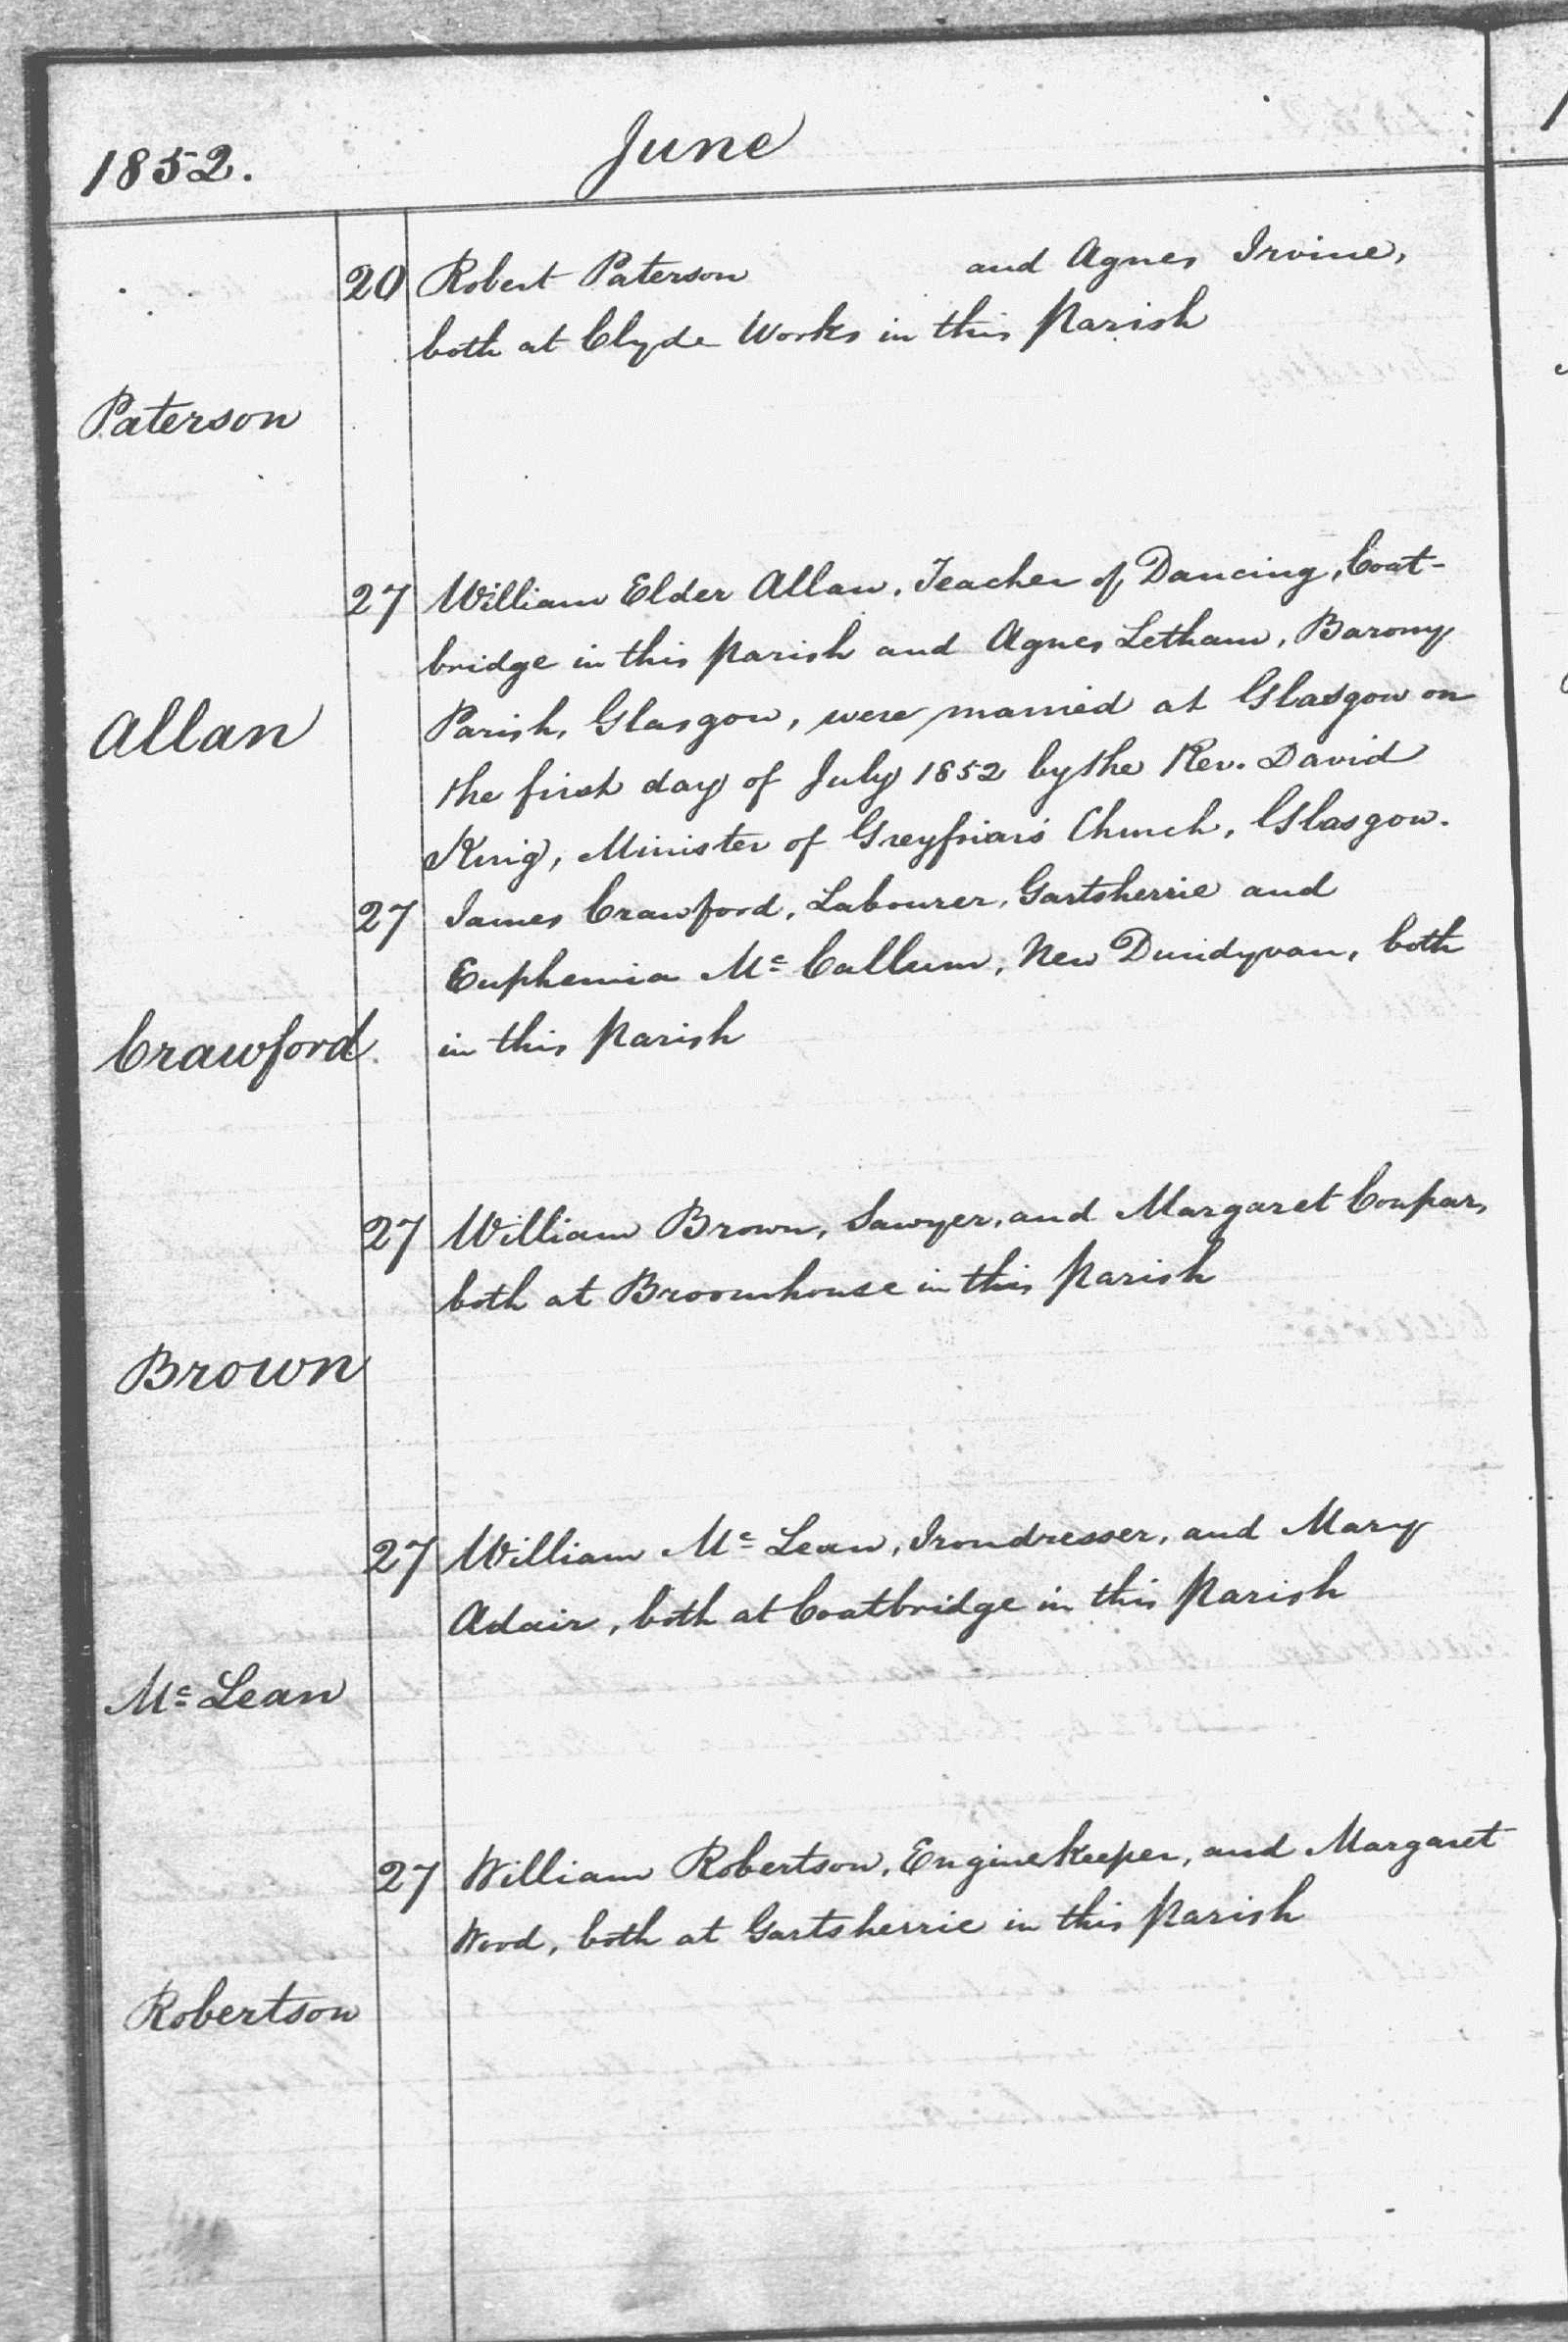 1852. June
20 Robert Paterson and Agnes Irvine,
both at Clyde Works in this Parish
Paterson
27 William Elder Allan, Teacher of Dancing, Coat-
bridge in this Parish and Agnes Letham, Barony
Parish, Glasgow, were married at Glasgow on
Allan
the first day of July 1852 by the Rev. David
King, Minister of Greyfriar's Church, Glasgow.
27 James Crawford, Labourer, Gartsherrie and
Euphemia Mc Callum, New Dundyvan, both
in this Parish
Crawford
27 William Brown, Sawyer, and Margaret Coupar,
both at Broomhouse in this Parish
Brown
27 William Mc Lean, Irondresser, and Mary
Adair, both at Coatbridge in this Parish
Mc Lean
27 William Robertson, Enginekeeper, and Margaret
Wood, both at Gartsherrie in this Parish
Robertson